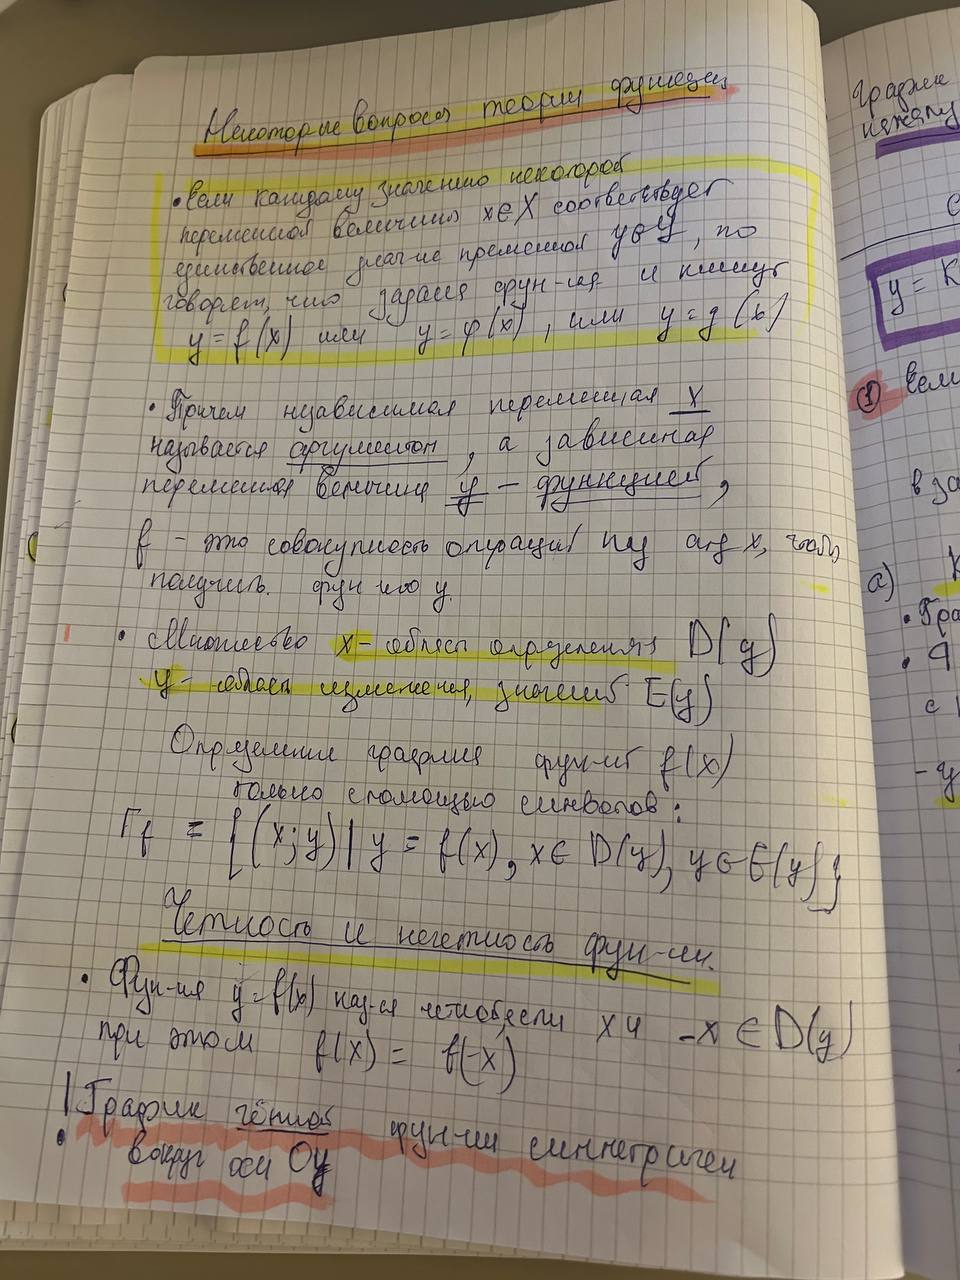 Некоторые вопросы теории функции
• Если каждому значению некоторой
переменной величины x∈X соответствует
единственное знач-ие пременной y∈Y, то
говорят, что задана фун-ия и пишут
y = f(x) или y = φ(x), или y = g(x)
• Причем независимая переменная x
называется аргументом, а зависимая
переменная величина y – функцией,
f – это совокупность операций над arg x, чтобы
получить фун-ию y.
• Множество x – область определения D(y)
y – область изменения, значений E(y)
Определение графика фун-ий f(x)
только с помощью символов:
Гf = {(x;y) | y = f(x), x∈D(y), y∈E(y)}
Четность и нечетность фун-ии.
• Фун-ия y=f(x) наз-ся четной, если x и -x ∈ D(y)
при этом f(x) = f(-x)
! График чётной фун-ии симметричен
• вокруг оси Oy
График
y = k
① Если
в за
а) к
• Гра
•
с
- y